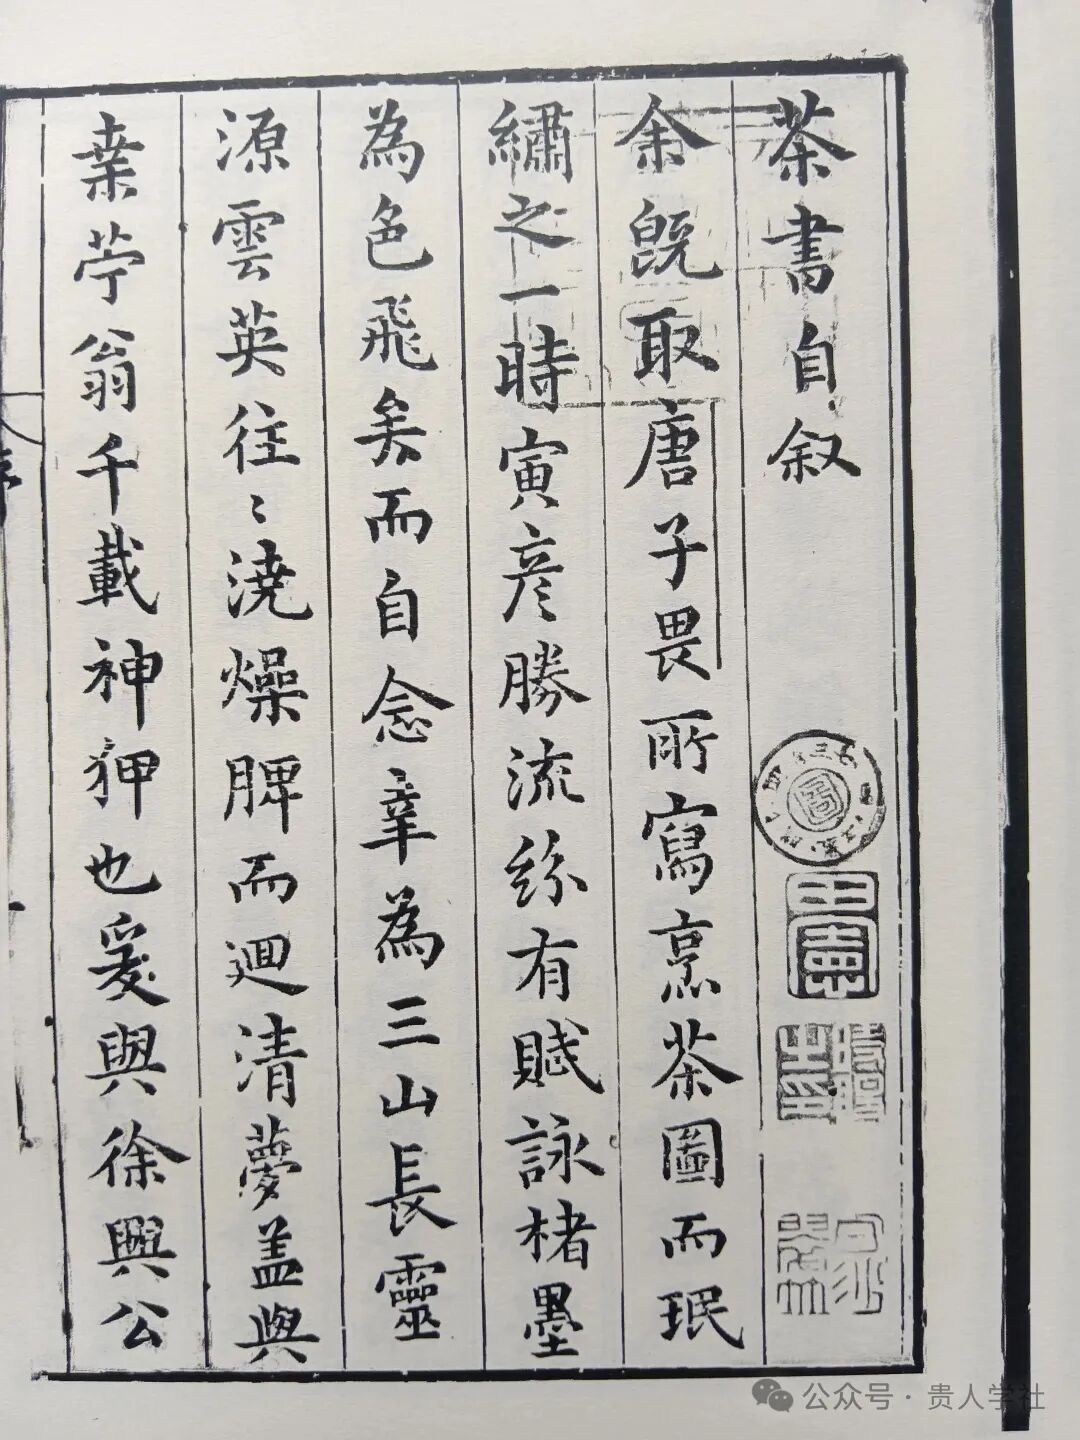 茶書自叙
余既取唐子畏所寫烹茶圖而珉
繡之一時寅彦勝流紛有賦詠楮墨
為色飛矣而自念幸為三山長靈
源雲英往〻澆燥脾而迴清夢盖與
桒苧翁千載神狎也爰與徐興公
公众号·贵人学社